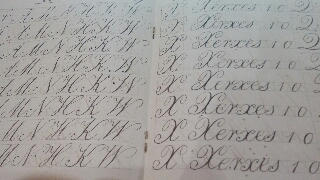 M N H K W
A M N H K W
A M N H K W
A M N H K W
M N H K W
M N H K W
M N H K W
M N H K W
X Xerxes 1 0 2
X Xerxes 1 0 2
X Xerxes 1 0 2
X Xerxes 1 0 2
X Xerxes 1 0 2
X Xerxes 1 0
X Xerxes 1 0
X Xerxes 1 0